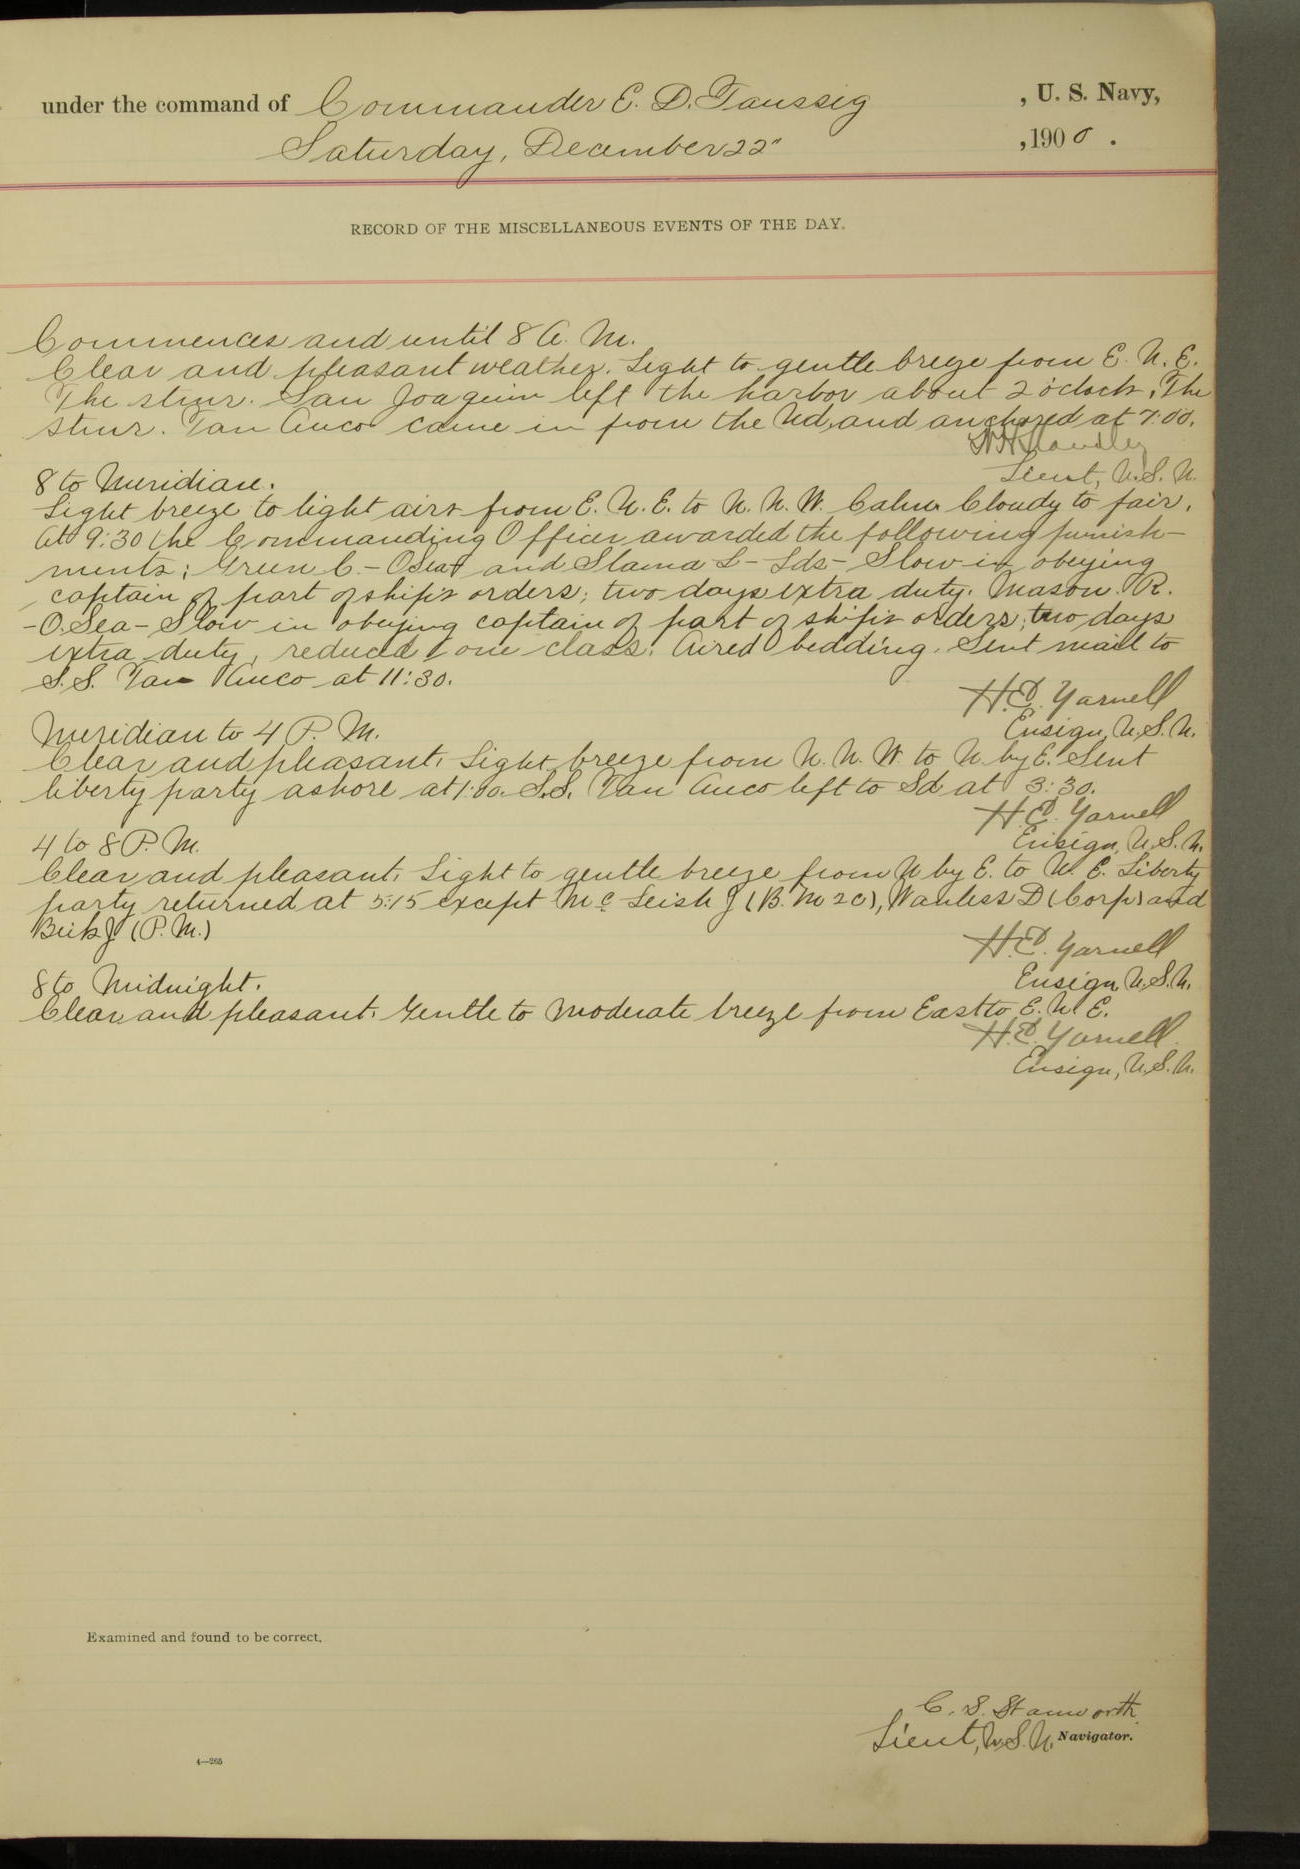 under the command of Commander E. D. Taussig , U. S. Navy,
Saturday, December 22" , 1900 .
RECORD OF THE MISCELLANEOUS EVENTS OF THE DAY.
Commences and until 8 A. M.
Clear and pleasant weather. Light to gentle breeze from E. N. E.
The stmr. San Joaquin left the harbor about 2 o'clock. The
stmr. Tan Auco came in from the Nd, and anchored at 7:00.
W H Standley
Lieut, U.S. N.
8 to Meridian.
Light breeze to light airs from E. N. E. to N. N. W. Calm. Cloudy to fair.
At 9:30 the Commanding Officer awarded the following punish-
ments; Green C. - OSea and Slama L - Lds - Slow in obeying
captain of part of ship's orders; two days extra duty. Mason. R.
- O.Sea - Slow in obeying captain of part of ship's orders; two days
extra duty, reduced one class. Aired bedding. Sent mail to
S.S. Tan Auco at 11:30.
H.E. Yarnell
Ensign, U.S. N.
Meridian to 4 P. M.
Clear and pleasant. Light breeze from N. N. W. to N. by E. Sent
liberty party ashore at 1:00. S.S. Tan Auco left to Sd at 3:30.
H.E. Yarnell
Ensign, U.S. N.
4 to 8 P. M.
Clear and pleasant. Light to gentle breeze from N by E. to N. E. Liberty
party returned at 5:15 except Mc Leish J (B. M 2c), Wanless D (Corp) and
J (P. M.)
H.E. Yarnell
Ensign, U.S. N.
8 to Midnight.
Clear and pleasant. Gentle to moderate breeze from East to E. N. E.
H.E. Yarnell.
Ensign, U.S. N.
Examined and found to be correct.
C. S. Stanworth
Lieut, U.S. N. Navigator.
4—265